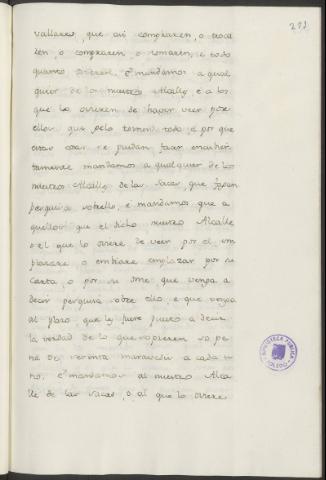 211
vallares, que asi compraren, o troca
ren, o compraren o tomaren, e todo
quanto ovieren. E mandamos a qual
quier de los nuestros Alcalles e a los
que lo ovieren de haver veer por
ellos que gelo tomen todo, e por que
estas cosas se puedan facer encuber
tamente mandamos a qualquier de los
nuestros Alcalles de las sacas que fagan
pesquisa sobrello, e mandamos que a
quellos que el dicho nuestro Alcalle
o el que lo oviere de veer por el em
plazare o embiare emplazar por su
carta o por su ome que venga a
decir pesquisa sobre ello, e que venga
al plazo que les fuere puesto a decir
la verdad de lo que sopieren so pe
na de sesenta maravedis a cada u
no. E mandamos al nuestro Alca
lle de las sacas, o al que lo oviere
BIBLIOTECA PUBLICA
TOLEDO